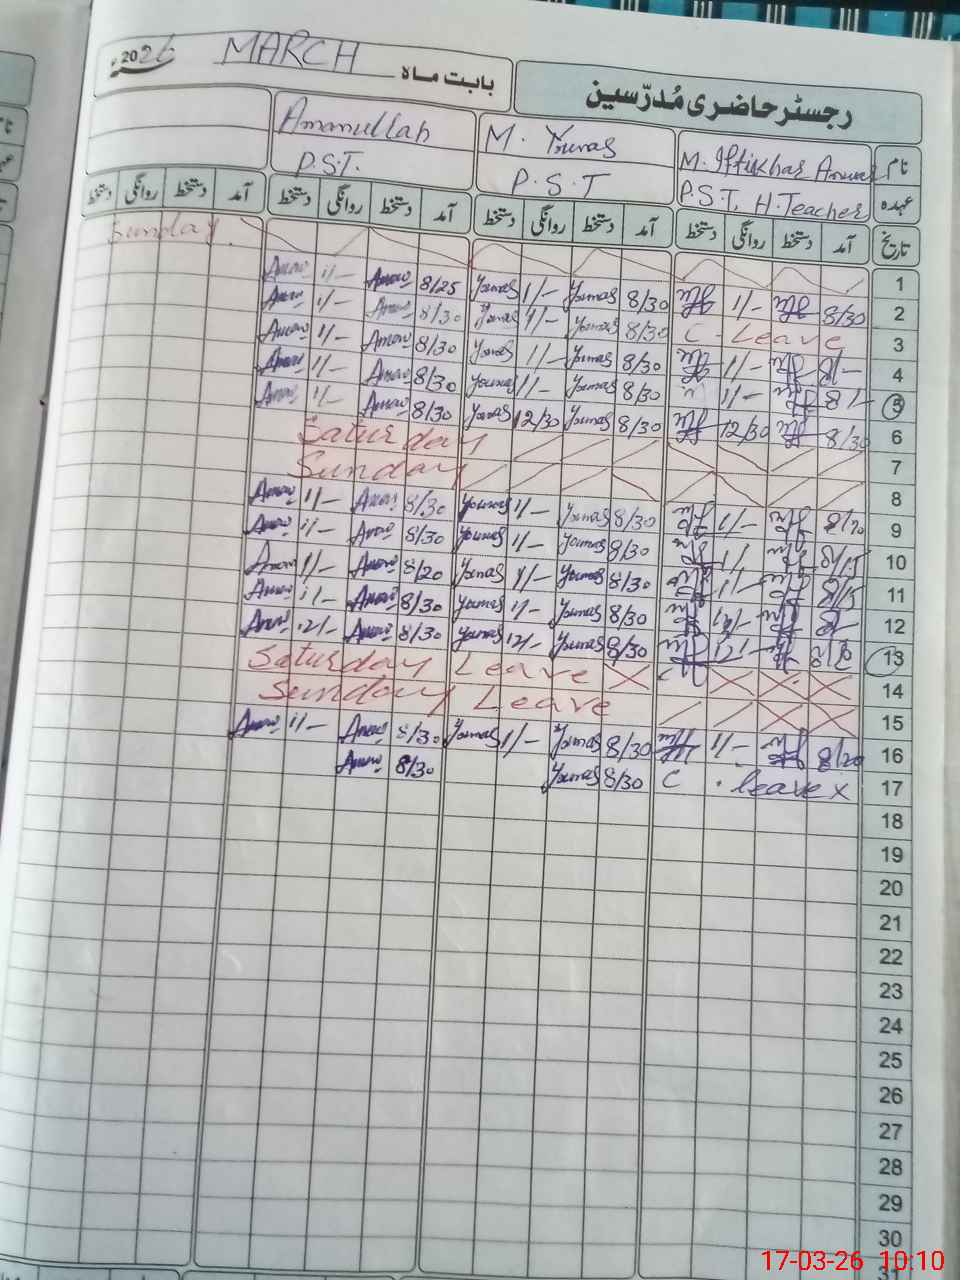 رجسٹر حاضری مُدرّسین
بابت ماہ MARCH 2026ء
نام M. Iftikhar Anwar M. Younas Amanullah
عہدہ P.S.T, H.Teacher P.S.T P.S.T.
تاریخ آمد دستخط روانگی دستخط آمد دستخط روانگی دستخط آمد دستخط روانگی دستخط آمد دستخط روانگی دستخط
1 Sunday
2 8/30 1/- 8/30 Younas 1/- Younas 8/25 Anow 1/- Anow
3 C - Leave 8/30 Younas 1/- Younas 8/30 Anow 1/- Anow
4 1/- 8/30 Younas 1/- Younas 8/30 Anow 1/- Anow
5 1/- 8/30 Younas 1/- Younas 8/30 Anow 1/- Anow
6 8/30 12/30 8/30 Younas 12/30 Younas 8/30 Anow 1/- Anow
7 Saturday
8 Sunday
9 1/- 8/30 Younas 1/- Younas 8/30 Anow 1/- Anow
10 8/15 1/- 8/30 Younas 1/- Younas 8/30 Anow 1/- Anow
11 8/15 1/- 8/30 Younas 1/- Younas 8/20 Anow 1/- Anow
12 8/30 Younas 1/- Younas 8/30 Anow 1/- Anow
13 8/30 Younas 12/- Younas 8/30 Anow 12/- Anow
14 Saturday Leave
15 Sunday Leave
16 8/20 1/- 8/30 Younas 1/- Younas 8/30 Anow 1/- Anow
17 C . leave x 8/30 Younas 8/30 Anow
18
19
20
21
22
23
24
25
26
27
28
29
30
31
17-03-26 10:10